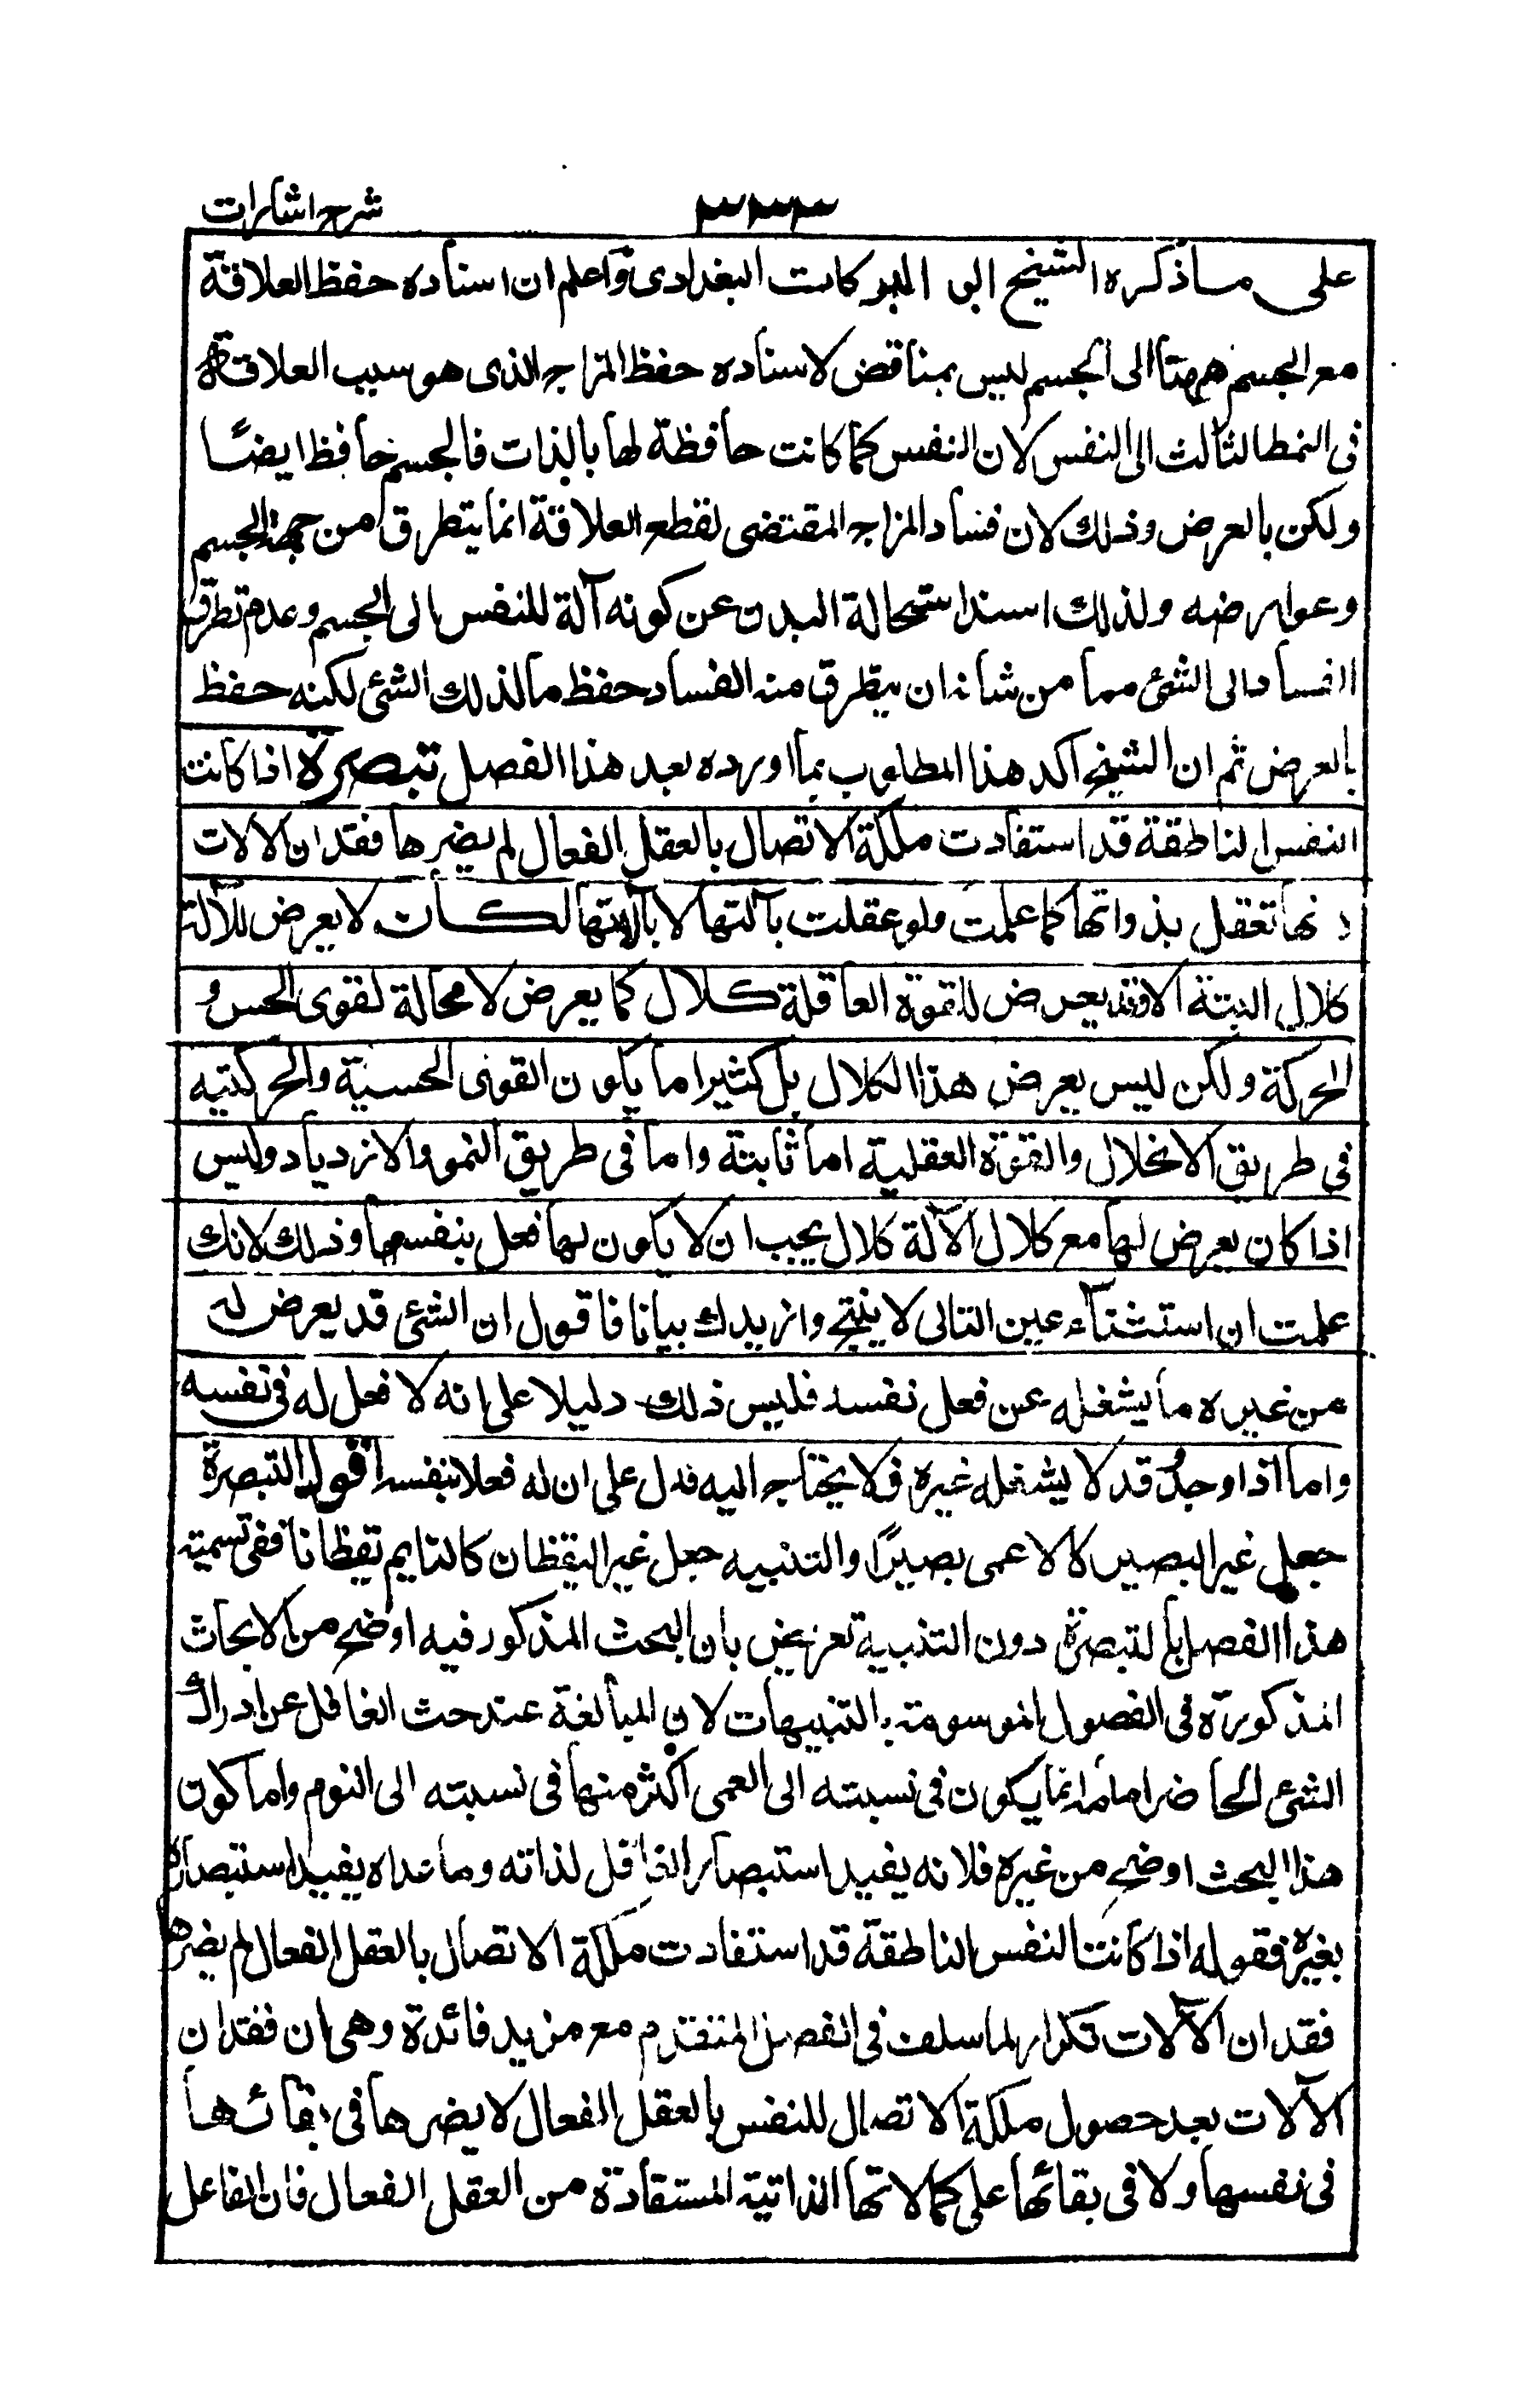 شرح اشارات
٣٣٣
على ما ذكره الشيخ ابى البركات البغدادى واعلم ان اسناده حفظ العلاقة
مع الجسم ههنا الى الجسم ليس بمناقض لاسناده حفظ المزاج الذى هو سبب العلاقة
فى النمط الثالث الى النفس لان النفس كما كانت حافظة لها بالذات فالجسم حافظ ايضًا
ولكن بالعرض وذلك لان فساد المزاج المقتضى لقطع العلاقة انما يتطرق من جهة الجسم
وعوارضه ولذلك اسند استحالة البدن عن كونه آلة للنفس الى الجسم وعدم تطرق
الفساد الى الشئ مما من شانه ان يتطرق منه الفساد حفظ ما لذلك الشئ لكنه حفظ
بالعرض ثم ان الشيخ اكد هذا المطلوب بما اورده بعد هذا الفصل تبصرة اذا كانت
النفس الناطقة قد استفادت ملكة الاتصال بالعقل الفعال لم يضرها فقدان الالات
نها تعقل بذواتها كما علمت ولو عقلت بآلتها لا لكان لا يعرض للآلة
كلال البتة الا وقد يعرض للقوة العاقلة كلال كما يعرض لا محالة لقوى الحس و
الحركة ولكن ليس يعرض هذا الكلال بل كثيرا ما يكون القوى الحسية والحركتيه
فى طريق الانحلال والقوة العقلية اما ثابتة واما فى طريق النمو والازدياد وليس
اذا كان يعرض لها مع كلال الآلة كلال يجب ان لا يكون لها فعل بنفسها وذلك لانك
علمت ان استثناء عين التالى لا ينتج وازيدك بيانا فاقول ان الشئ قد يعرض له
من غيره ما يشغله عن فعل نفسه فليس ذلك دليلا على انه لا فعل له فى نفسه
واما اذا وجد قد لا يشغله غيره فلا يحتاج اليه فدل على ان له فعلا بنفسه اقول التبصرة
جعل غير البصير كالاعمى بصيرًا والتنبيه جعل غير اليقظان كالنايم يقظانا ففى تسمية
هذا الفصل بالتبصرة دون التنبيه تعريض بان البحث المذكور فيه اوضح من الابحاث
المذكورة فى الفصول الموسومة بالتنبيهات لان المبالغة عند حث الغافل عن ادراك
الشئ الحاضر امامه انما يكون فى نسبته الى العمى اكثر منها فى نسبته الى النوم واما كون
هذا البحث اوضح من غيره فلانه يفيد استبصار الغافل لذاته وما عداه يفيد استبصاره
بغيره فقوله اذا كانت النفس الناطقة قد استفادت ملكة الاتصال بالعقل الفعال لم يضرها
فقدان الآلات تكرار لما سلف فى الفصل المتقدم مع مزيد فائدة وهى ان فقدان
الآلات بعد حصول ملكة الاتصال للنفس بالعقل الفعال لا يضرها فى بقائها
فى نفسها ولا فى بقائها على كمالاتها الذاتية المستفادة من العقل الفعال فان الفاعل